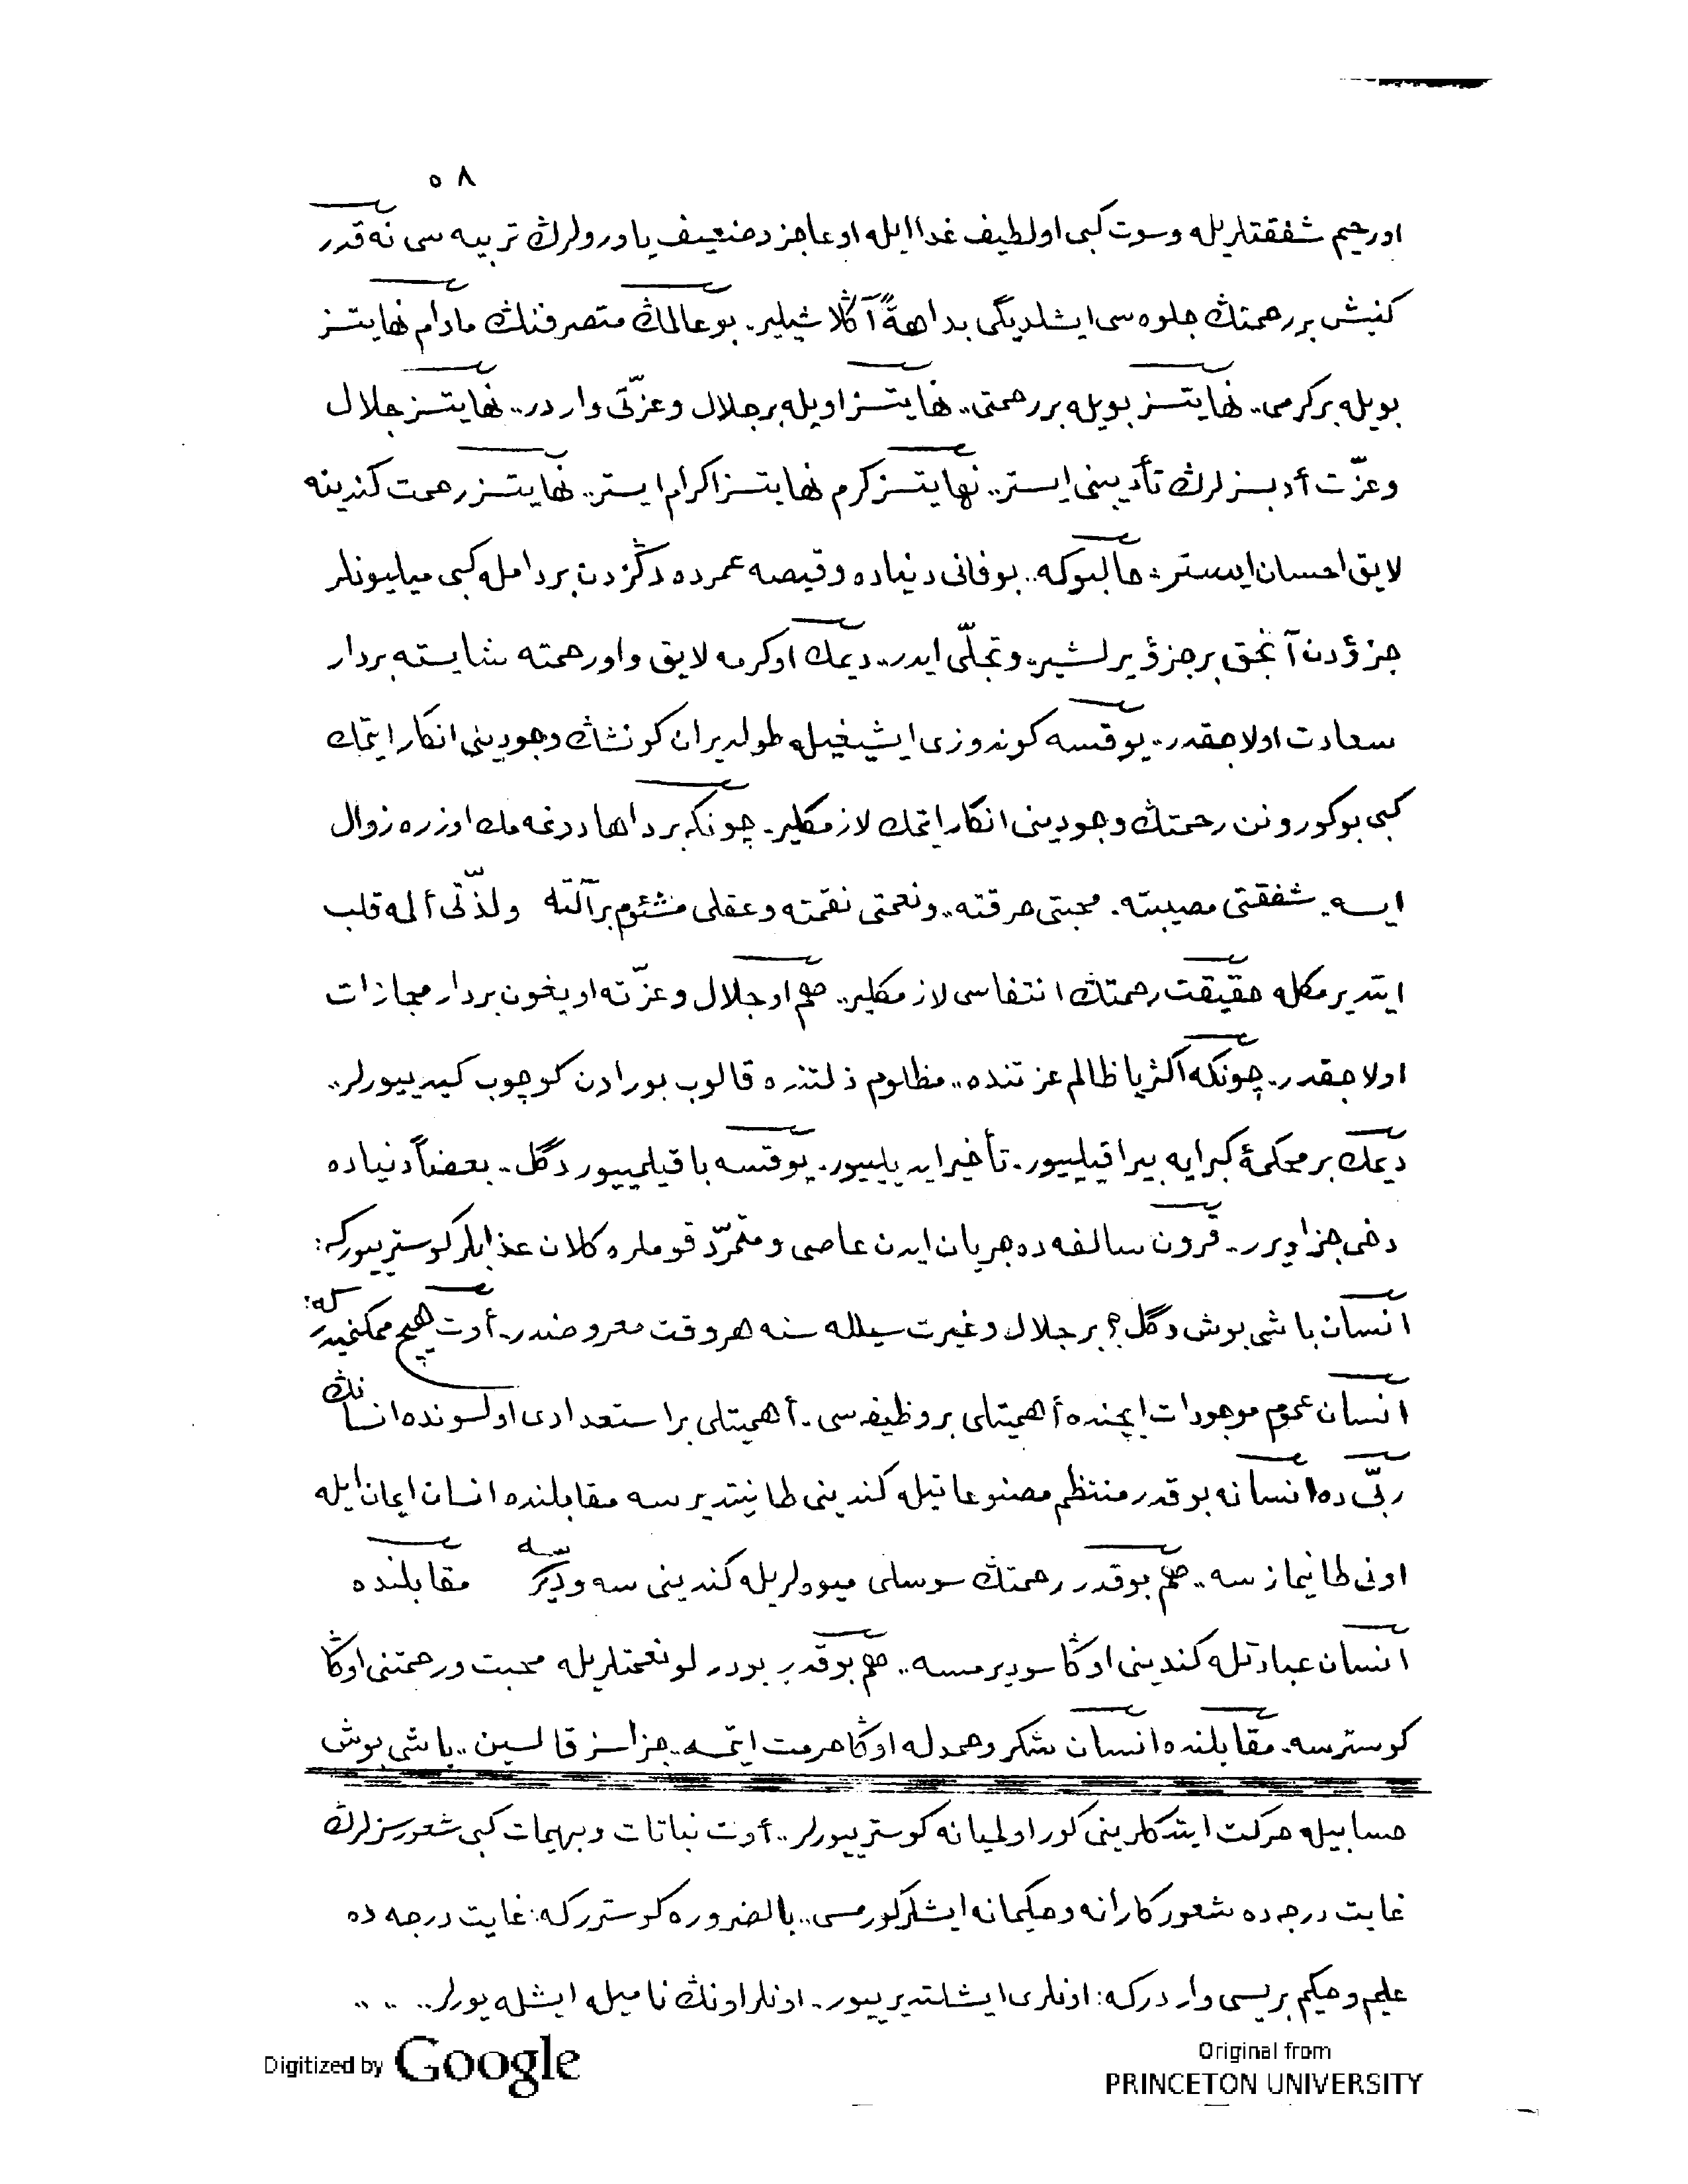 ٥٨
او رحيم شفقتلريله وسوت كبى او لطيف غدا ايله او عاجز وضعيف ياورولرڭ تربيه سى نه قدر
كنيش بر رحمتڭ جلوه سى ايشلديگى بداهةً آڭلاشيلير. بو عالمڭ متصرفنڭ مادام نهايتسز
بويله بر كرمى.. نهايتسز بويله بر رحمتى.. نهايتسز اويله بر جلال وعزّتى واردر.. نهايتسز جلال
وعزّت أدبسزلرڭ تأديبنى ايستر.. نهايتسز كرم نهايتسز اكرام ايستر.. نهايتسز رحمت كندينه
لايق احسان ايستر. حالبوكه.. بو فانى دنياده وقيصه عمرده دڭزدن بر دامله كبى ميليونلر
جزؤدن آنجق بر جزؤ يرلشير. وتجلّى ايدر.. ديمك او كرمه لايق واو رحمته شايسته بر دار
سعادت اولاجقدر. يوقسه كوندوزى ايشيغيله طولديران كونشڭ وجودينى انكار ايتمك
كبى بو كورونن رحمتڭ وجودينى انكار ايتمك لازمكلير. چونكه بر داها دونمه مك اوزره زوال
ايسه. شفقتى مصيبته. محبتى حرقته.. ونعمتى نقمته وعقلى مشئوم بر آلته ولذّتى ألمه قلب
ايتديرمكله حقيقت رحمتڭ انتفاسى لازمكلير.. هم او جلال وعزّته اويغون بر دار مجازات
اولاجقدر. چونكه اكثريا ظالم عزتنده.. مظلوم ذلتنده قالوب بورادن كوچوب كيدييورلر..
ديمك بر محكمۀ كبرايه بيراقيلييور. تأخير ايديلييور. يوقسه باقيلمييور دگل. بعضاً دنياده
دخى جزا ويرر. قرون سالفه ده جريان ايدن عاصى ومتمرّد قوملره كلان عذابلر كوسترييوركه:
انسان باشى بوش دگل؟ بر جلال وغيرت سيلله سنه هر وقت معروضدر. أوت هيچ ممكنميدر كه:
انسان عموم موجودات ايچنده أهميتلى بر وظيفه سى. أهميتلى بر استعدادى اولسونده انسانڭ
ربّى ده انسانه بو قدر منتظم مصنوعاتيله كندينى طانيتديرسه مقابلنده انسان ايمان ايله
اونى طانيمازسه.. هم بو قدر رحمتڭ سوسلى ميوه لريله كندينى سوديرسه مقابلنده
انسان عبادتله كندينى اوڭا سوديرمسه.. هم بو قدر بو درلو نعمتلريله محبت ورحمتنى اوڭا
كوسترسه. مقابلنده انسان شكر وحمدله اوڭا حرمت ايتمسه. جزاسز قالسين.. باشى بوش
حسابيله حركت ايتدكلرينى كور اوليانه كوسترييورلر.. أوت نباتات وبهيمات كبى شعورسزلرڭ
غايت درجه ده شعوركارانه وحكيمانه ايشلر كورمسى.. بالضروره كوستررکه: غايت درجه ده
عليم وحكيم بريسى واردركه: اونلرى ايشلتديرييور. اونلر اونڭ ناميله ايشله يورلر..
Digitized by Google
Original from
PRINCETON UNIVERSITY